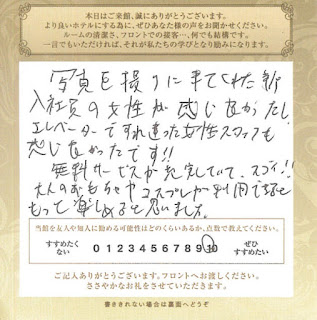 本日はご来館、誠にありがとうございます。
より良いホテルにする為に、ぜひあなた様の声をお聞かせください。
ルームの清潔さ、フロントでの接客…、何でも結構です。
一言でもいただければ、それが私たちの学びとなり励みになります。
写真を撮りに来てくれた新
入社員の女性が感じ良かったし
エレベーターですれ違った女性スタッフも
感じ良かったです!!
無料サービスが充実していて、スゴイ!!
大人のおもちゃやコスプレが利用できると
もっと楽しめると思いました。
当館を友人や知人に勧める可能性はどのくらいあるか、点数で教えてください。
すすめたく
ない
0 1 2 3 4 5 6 7 8 9 10
ぜひ
すすめたい
ご記入ありがとうございます。フロントへお渡しください。
ささやかなお礼をさせていただきます。
書ききれない場合は裏面へどうぞ